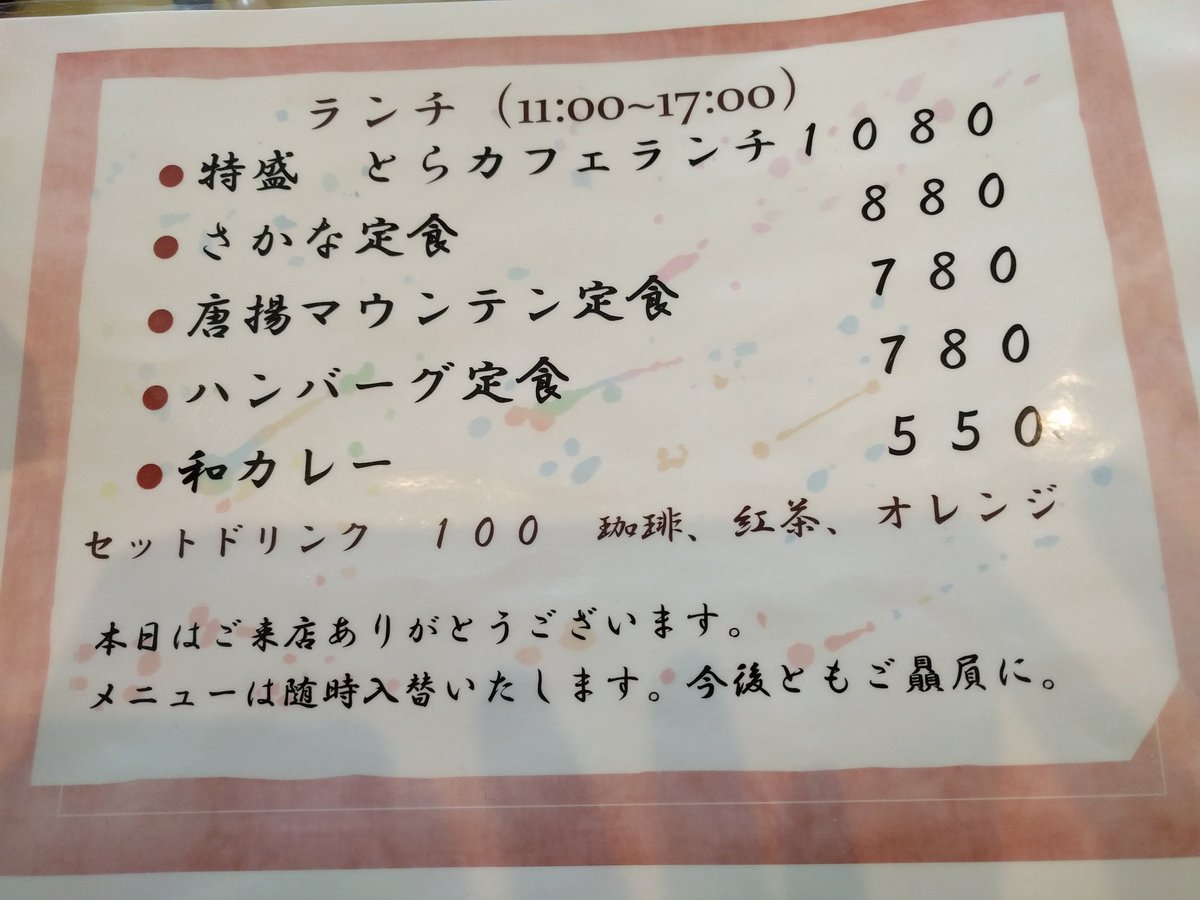 ランチ（11:00~17:00）
●特盛　とらカフェランチ１０８０
●さかな定食　８８０
●唐揚マウンテン定食　７８０
●ハンバーグ定食　７８０
●和カレー　５５０
セットドリンク　１００　珈琲、紅茶、オレンジ
本日はご来店ありがとうございます。
メニューは随時入替いたします。今後ともご贔屓に。